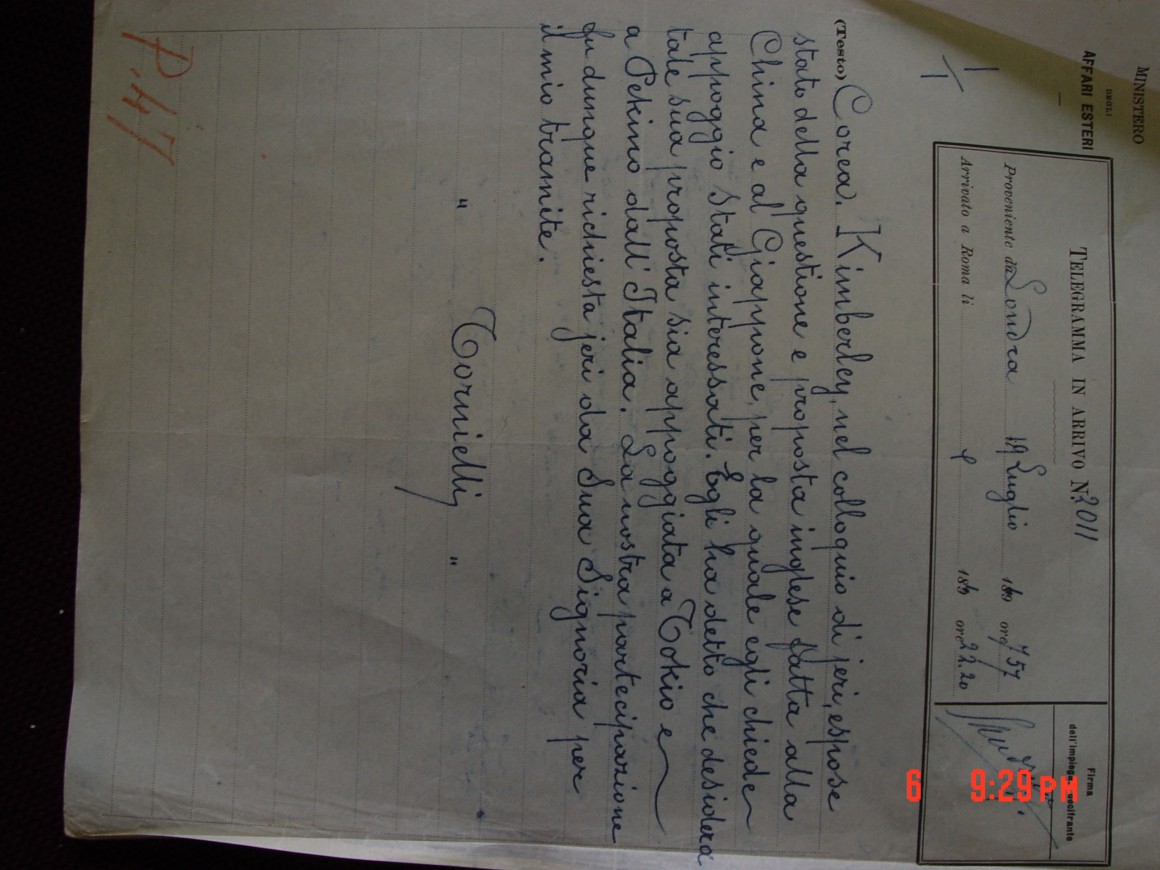 MINISTERO
DEGLI
AFFARI ESTERI
TELEGRAMMA IN ARRIVO N. 2011
Proveniente da Londra 19 Luglio 189 ore 7 57
Arrivato a Roma li 189 ore 22.20
Firma
dell'impiegato decifrante
(Testo) Corea. Kimberley, nel colloquio di jeri, espose
stato della questione e proposta inglese fatta alla
China e al Giappone, per la quale egli chiede
appoggio Stati interessati. Egli ha detto che desidera
tale sua proposta sia appoggiata a Tokio e
a Pekino dall'Italia. La nostra partecipazione
fu dunque richiesta jeri da Sua Signoria per
il mio tramite.
" Tornielli "
P. 47
6 9:29 PM